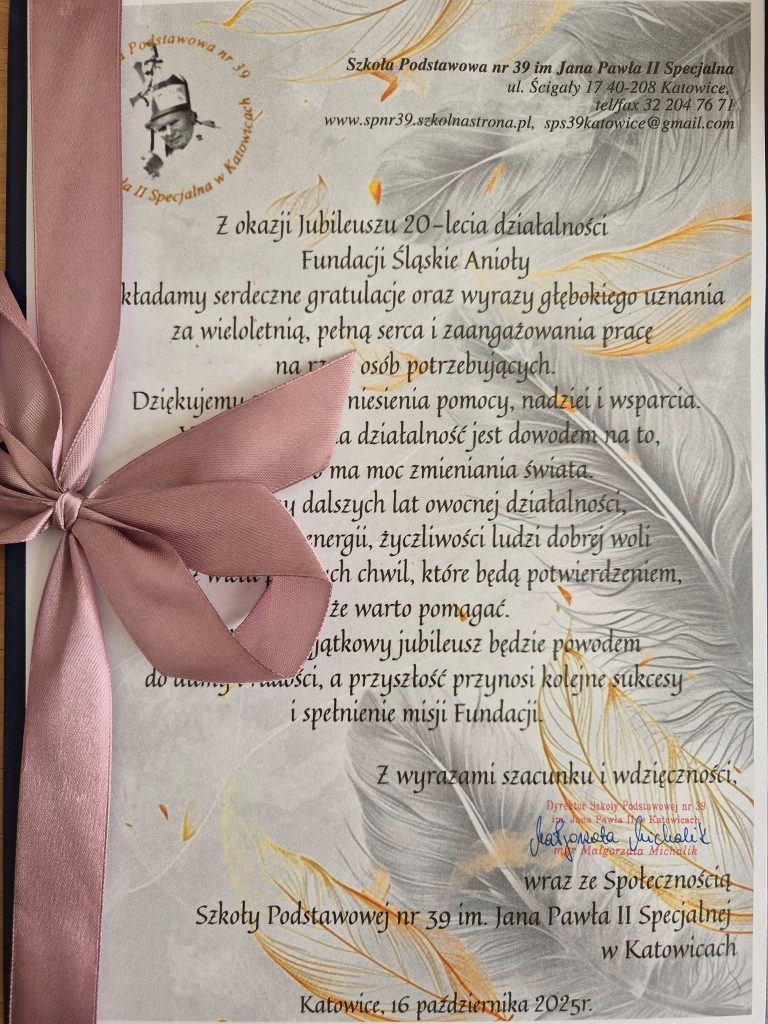 Podstawowa nr 39
II Specjalna w Katowicach
Szkoła Podstawowa nr 39 im Jana Pawła II Specjalna
ul. Ścigały 17 40-208 Katowice,
tel/fax 32 204 76 71
www.spnr39.szkolnastrona.pl, sps39katowice@gmail.com
Z okazji Jubileuszu 20-lecia działalności
Fundacji Śląskie Anioły
kładamy serdeczne gratulacje oraz wyrazy głębokiego uznania
za wieloletnią, pełną serca i zaangażowania pracę
na osób potrzebujących.
Dziękujemy niesienia pomocy, nadziei i wsparcia.
działalność jest dowodem na to,
ma moc zmieniania świata.
dalszych lat owocnej działalności,
energii, życzliwości ludzi dobrej woli
chwil, które będą potwierdzeniem,
że warto pomagać.
jubileusz będzie powodem
do a przyszłość przynosi kolejne sukcesy
i spełnienie misji Fundacji.
Z wyrazami szacunku i wdzięczności,
Dyrektor Szkoły Podstawowej nr 39
im. Jana Pawła II w Katowicach
Małgorzata Michalik
mgr Małgorzata Michalik
wraz ze Społecznością
Szkoły Podstawowej nr 39 im. Jana Pawła II Specjalnej
w Katowicach
Katowice, 16 października 2025r.